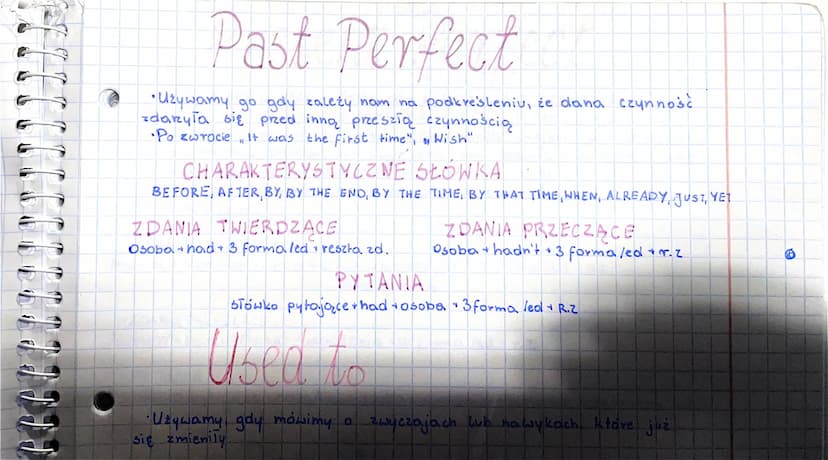 Past Perfect
• Używamy go gdy zależy nam na podkreśleniu, że dana czynność
zdarzyła się przed inną przeszłą czynnością
• Po zwrocie „It was the first time”, „Wish”
CHARAKTERYSTYCZNE SŁÓWKA
BEFORE, AFTER, BY, BY THE END, BY THE TIME, BY THAT TIME, WHEN, ALREADY, JUST, YET
ZDANIA TWIERDZĄCE
Osoba + had + 3 forma/ed + reszta zd.
ZDANIA PRZECZĄCE
Osoba + hadn't + 3 forma/ed + r.z
PYTANIA
Słówko pytające + had + osoba + 3 forma/ed + R.Z
Used to
• Używamy, gdy mówimy o zwyczajach lub nawykach, które już
się zmieniły